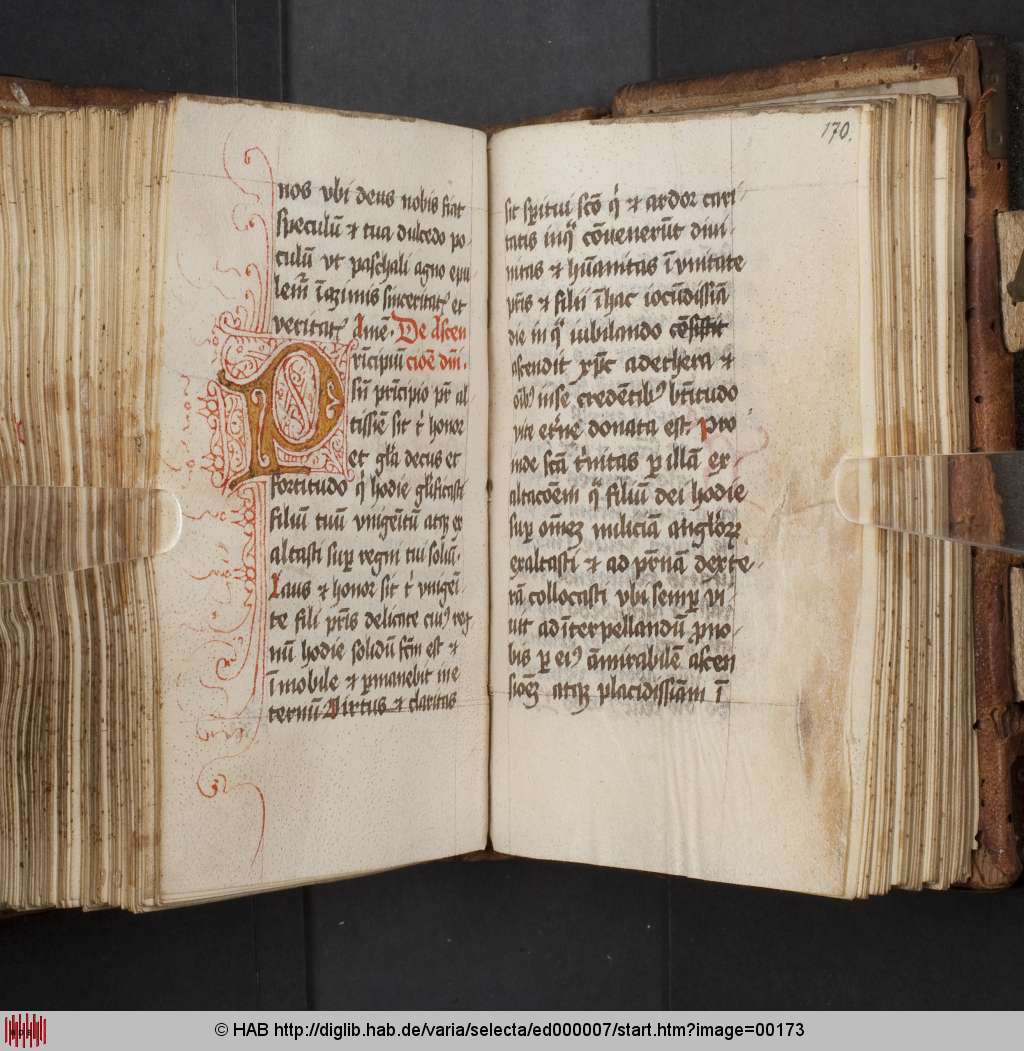 nos vbi deus nobis fiat
speculū ⁊ tua dulcedo po-
culū vt paschali agno epu-
lem̄ ī azimis sinceritat᷒ et
veritat᷒ Amē· De Ascen
rīcipiū cioē dm̄i·
sn̄ prīcipio pr̄ al
tissīe sit t̄ honor
et gl̄a decus et
fortitudo q̄ hodie gl̄ificasti
filiū tuū vnigeītū atqꝫ ex
altasti suꝑ regni tui soliū·
Laus ⁊ honor sit t̄ vnigeī-
te fili pr̄is delicate cuiꝰ reg
nū hodie solidū fc̄m est ⁊
īmobile ⁊ ꝑmanebit in e
ternū Virtus ⁊ claritas
170.
sit sp̄ritui sc̄o q̄ ⁊ ardor cari-
tatis in qͣ cōvenerūt divi-
nitas ⁊ hūanitas ī vnitate
pr̄is ⁊ filii ī hac iocūdissīa
die in qͣ iubilando
ascendit xp̄c ad ethera ⁊
oībꝰ in se credētibꝰ bt̄itudo
vite et̄ne donata est Pro
inde sc̄a t̄nitas ꝑ illā ex-
altacōem qͣ filiū dei hodie
suꝑ om̄eꝫ miliciā anglorꝫ
exaltasti ⁊ ad pr̄nā dexte-
rā collocasti vbi semꝑ vi-
uit ad īterpellandū ꝓ no-
bis ꝑ eiꝰ āmirabilē ascen
sioēꝫ atqꝫ placidissīam ī
© HAB http://diglib.hab.de/varia/selecta/ed000007/start.htm?image=00173